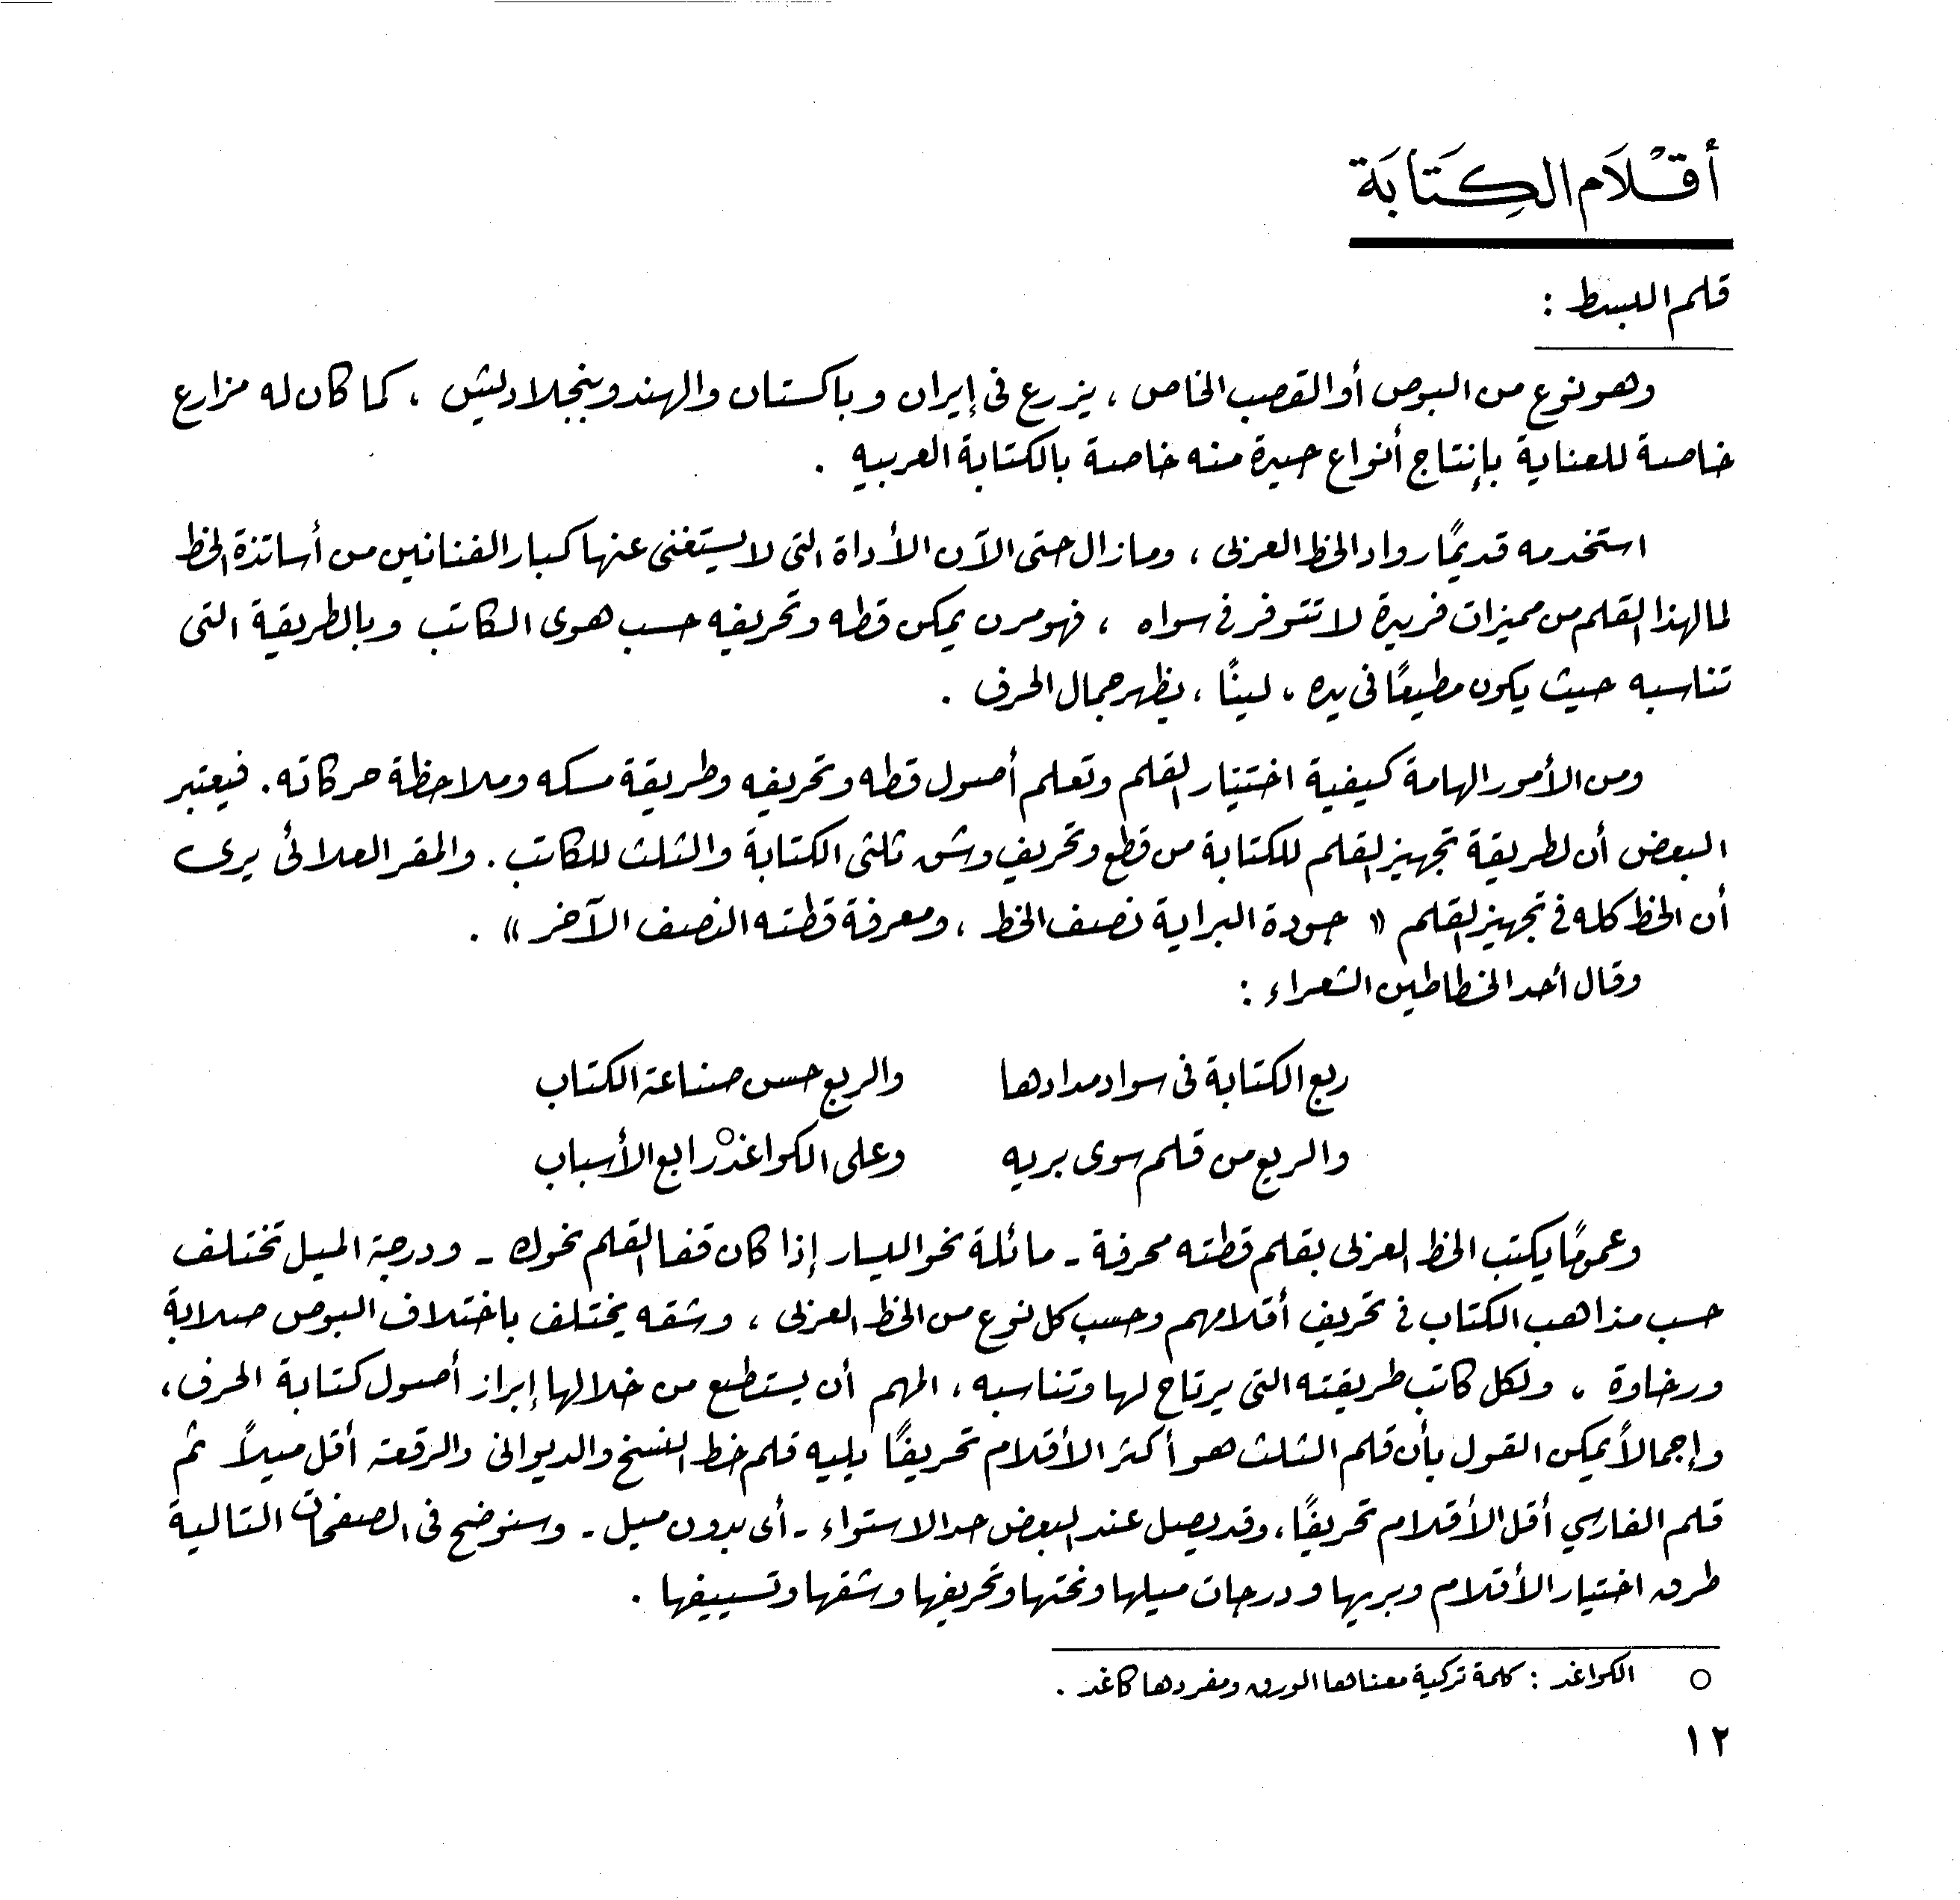 أقْلَام الكِتَابَة
قلم البسط :
وهو نوع من البوص أو القصب الخاص ، يزرع فى إيران وباكستان والهند وبنجلاديش ، كما كان له مزارع
خاصة للعناية بإنتاج أنواع جيدة منه خاصة بالكتابة العربيه .
استخدمه قديمًا رواد الخط العربى ، ومازال حتى الآن الأداة التى لا يستغنى عنها كبار الفنانين من أساتذة الخط
لما لهذا القلم من مميزات فريدة لا تتوفر فى سواه ، فهو مرن يمكن قطه وتحريفه حسب هوى الكاتب وبالطريقة التى
تناسبه حيث يكون مطيعًا فى يده ، لينًا ، يظهر جمال الحرف .
ومن الأمور الهامة كيفية اختيار القلم وتعلم أصول قطه وتحريفه وطريقة مسكه وملاحظة حركاته . فيعتبر
البعض أن لطريقة تجهيز القلم للكتابة من قطع وتحريف وشق ثلثى الكتابة والثلث للكاتب . والمقر العلائى يرى
أن الخط كله فى تجهيز القلم « جودة البراية نصف الخط ، ومعرفة قطته النصف الآخر » .
وقال أحد الخطاطين الشعراء :
ربع الكتابة فى سواد مدادها والربع حسن صناعة الكتاب
والربع من قلم سوى بريه وعلى الكواغد○ رابع الأسباب
وعمومًا يكتب الخط العربى بقلم قطته محرفة - مائلة نحو اليسار إذا كان قفا القلم نحوك - ودرجة الميل تختلف
حسب مذاهب الكتاب فى تحريف أقلامهم وحسب كل نوع من الخط العربى ، وشقه يختلف باختلاف البوص صلابة
ورخاوة ، ولكل كاتب طريقته التى يرتاح لها وتناسبه ، المهم أن يستطيع من خلالها إبراز أصول كتابة الحرف ،
وإجمالاً يمكن القول بأن قلم الثلث هو أكثر الأقلام تحريفًا يليه قلم خط النسخ والديوانى والرقعة أقل ميلاً ثم
قلم الفارسي أقل الأقلام تحريفًا ، وقد يصل عند البعض حد الاستواء - أى بدون ميل - وسنوضح فى الصفحات التالية
طرق اختيار الأقلام وبريها ودرجات ميلها ونحتها وتحريفها وشقها وتسييفها .
○ الكواغد : كلمة تركية معناها الورق ومفردها كاغد .
١٢